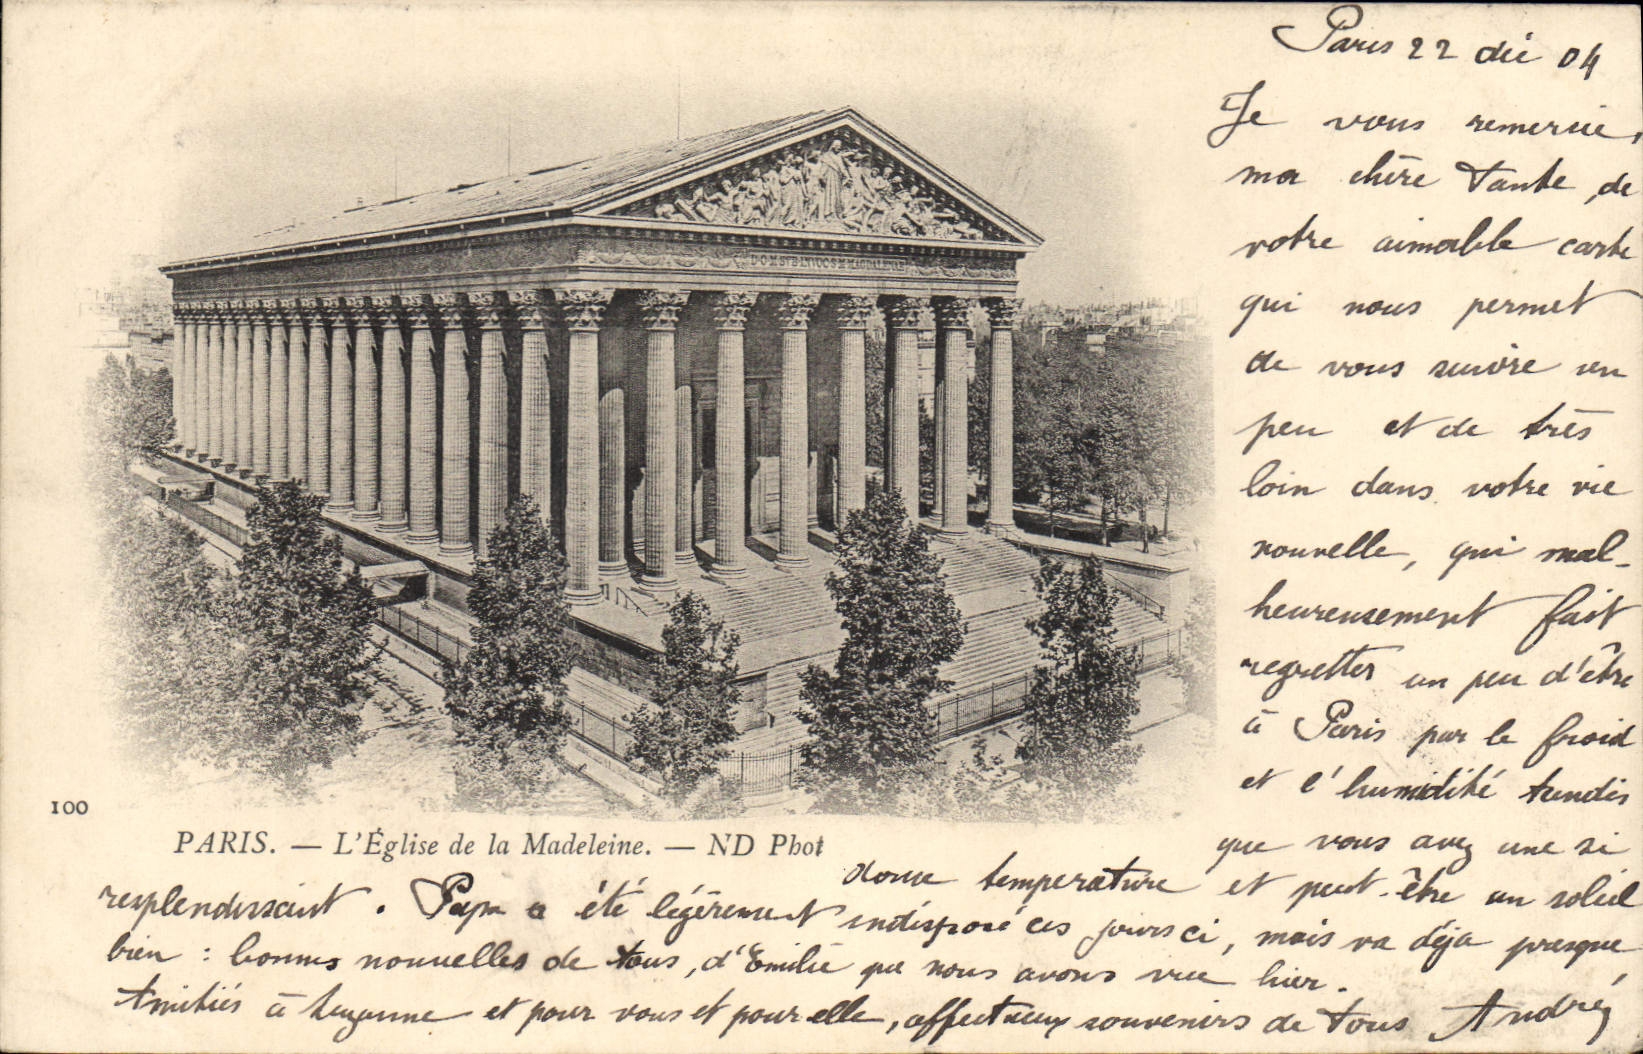 Paris 22 déc 04
Je vous remercie,
ma chère tante, de
votre aimable carte
qui nous permet
de vous suivre un
peu et de très
loin dans votre vie
nouvelle, qui mal-
heureusement fait
regretter un peu d'être
à Paris par le froid
et l'humidité tandis
que vous avez une si
douce température et peut-être un soleil
resplendissant. Papa a été légèrement indisposé ces jours ci, mais va déjà presque
bien : bonnes nouvelles de tous, d'Emilie que nous avons vue hier.
Amitiés à Suzanne et pour vous et pour elle, affectueux souvenirs de tous André
DOM SVB INVOC S M MAGDALENAE
100
PARIS. — L'Église de la Madeleine. — ND Phot